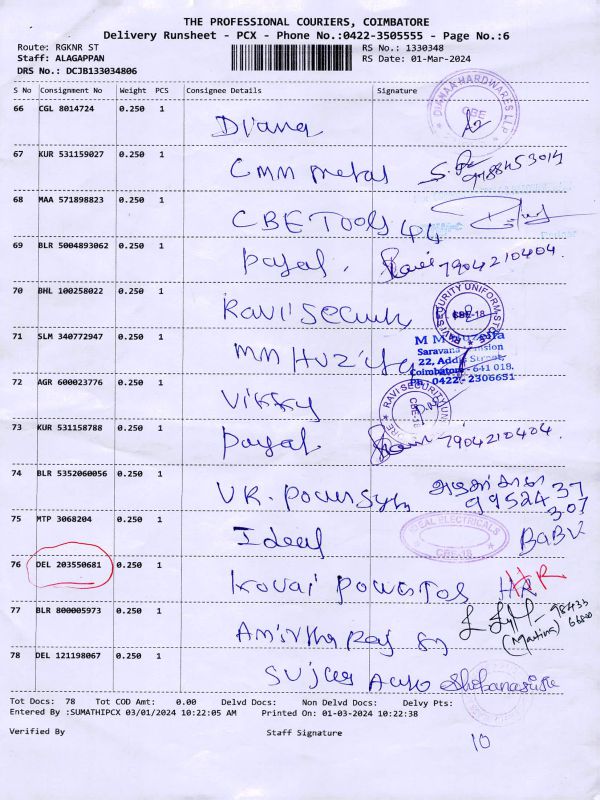 THE PROFESSIONAL COURIERS, COIMBATORE
Delivery Runsheet - PCX - Phone No.:0422-3505555 - Page No.:6
Route: RGKNR ST RS No.: 1330348
Staff: ALAGAPPAN RS Date: 01-Mar-2024
DRS No.: DCJB133034806
S No Consignment No Weight PCS Consignee Details Signature
66 CGL 8014724 0.250 1
Diana
DIANAA HARDWARES LLP CBE
67 KUR 531159027 0.250 1
CMM metal
68 MAA 571898823 0.250 1
CBE Tools
69 BLR 5004893062 0.250 1
Payal. 7904210404.
70 BHL 100258022 0.250 1
Ravi Security
RAVI SECURITY UNIFORM STORES CBE-18
71 SLM 340772947 0.250 1
MM Huzaifa
22, Addis Street,
Coimbatore - 641 018.
Ph: 0422-2306651
72 AGR 600023776 0.250 1
Vikky
RAVI SECURITY CBE-18
73 KUR 531158788 0.250 1
Payal 7904210404.
74 BLR 5352060056 0.250 1
VR. Power Sys
99524 37
307
75 MTP 3068204 0.250 1
Ideal BABU
IDEAL ELECTRICALS CBE-18
76 DEL 203550681 0.250 1
Kovai Powertos HR
HR
77 BLR 800005973 0.250 1
Amirtharaj
(Martina)
78 DEL 121198067 0.250 1
Sujees Auto
Tot Docs: 78 Tot COD Amt: 0.00 Delvd Docs: Non Delvd Docs: Delvy Pts:
Entered By :SUMATHIPCX 03/01/2024 10:22:05 AM Printed On: 01-03-2024 10:22:38
Verified By Staff Signature
10